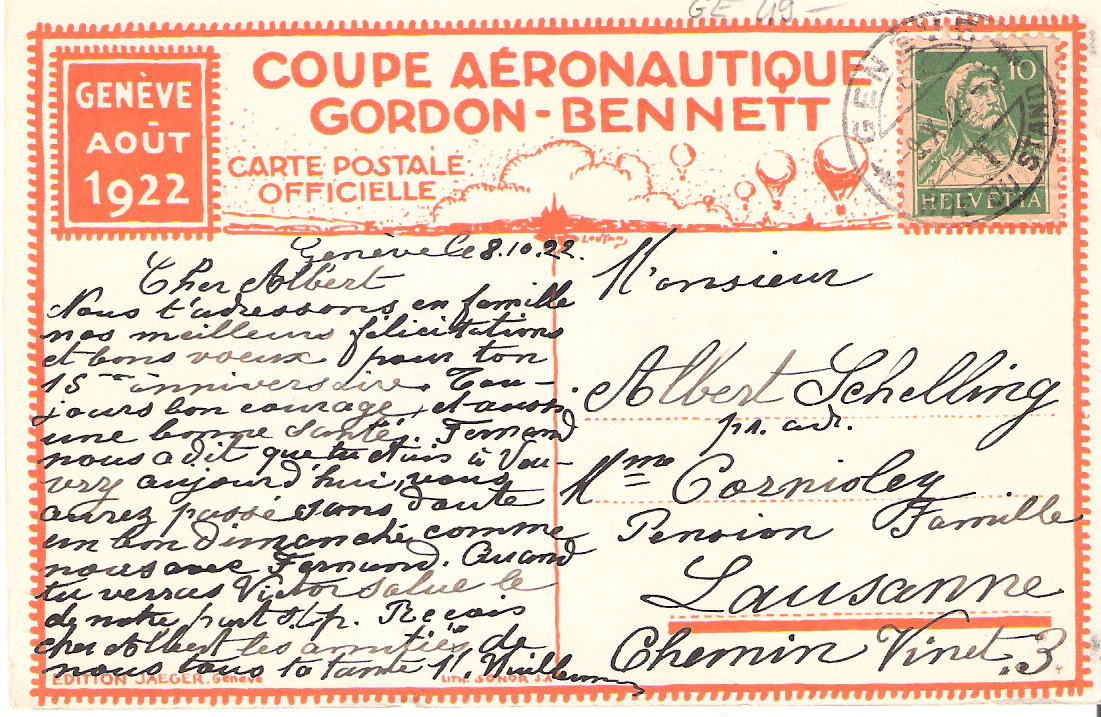 GE 49 -
COUPE AÉRONAUTIQUE
GORDON-BENNETT
GENÈVE
AOÛT
1922
CARTE POSTALE
OFFICIELLE
10
HELVETIA
GENÈVE
STAND
Genève le 8.10.22.
Cher Albert
Nous t'adressons en famille
nos meilleurs félicitations
et bons voeux pour ton
15me anniversaire. Tou-
jours bon courage, et aussi
une bonne santé. Fernand
nous a dit que tu étais à Vou-
vry aujourd'hui, vous
aurez passé sans doute
un bon dimanche, comme
nous avec Fernand. Quand
tu verras Victor salue le
de notre part s.l.p. Reçois
cher Albert les amitiés de
nous tous ta tante
Monsieur
Albert Schelling
pr. adr.
Mme Cornioley
Pension Famille
Lausanne
Chemin Vinet. 3.
EDITION JAEGER. Genève
LITH. SONOR S.A.